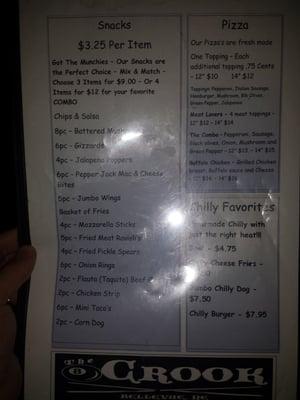 Snacks
$3.25 Per Item
Got The Munchies - Our Snacks are
the Perfect Choice - Mix & Match -
Choose 3 Items for $9.00 - Or 4
Items for $12 for your favorite
COMBO
Chips & Salsa
8pc - Battered
6pc - Gizzards
4pc - Jalapeno Poppers
6pc - Pepper Jack Mac & Cheese
Bites
5pc - Jumbo Wings
Basket of Fries
4pc - Mozzarella Sticks
5pc - Fried Meat Ravioli's
4pc - Fried Pickle Spears
6pc - Onion Rings
2pc - Flauta (Taquito) Beef
2pc - Chicken Strip
6pc - Mini Taco's
2pc - Corn Dog
Pizza
Our Pizza's are fresh made
One Topping - Each
additional topping .75 Cents
- 12" $10 14" $12
Toppings: Pepperoni, Italian Sausage,
Hamburger, Mushroom, Blk Olives,
Green Pepper, Jalapenos
Meat Lovers - 4 meat toppings -
12" $12 - 14" $14
The Combo - Pepperoni, Sausage,
Black olives, Onion, Mushroom and
Green Pepper - 12" $13 - 14" $15
Buffalo Chicken - Grilled Chicken
breast, Buffalo sauce and Cheese
- 12" $14 - 14" $16
Chilly Favorites
Homemade Chilly with
just the right heat!!!
- $4.75
Cheese Fries -
Jumbo Chilly Dog -
$7.50
Chilly Burger - $7.95
The
CROOK
BELLEVUE, NE